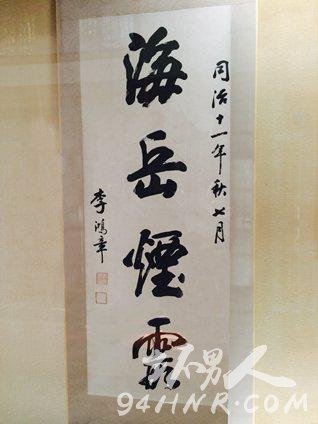 同治十一年秋七月
海岳煙霞
李鴻章
好男人
94HNR.COM